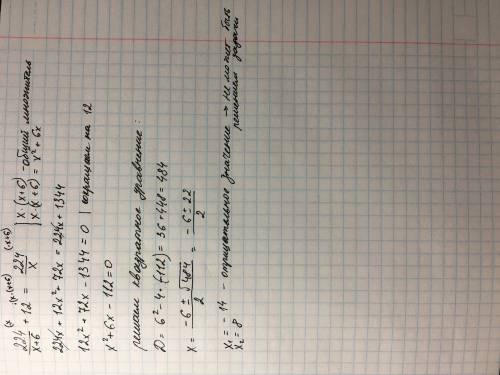 (x (x·(x+6) (x+6)
224/(x+6) + 12 = 224/x | x·(x+6) - общий множитель
x·(x+6) = x²+6x
224x + 12x² + 72x = 224x + 1344
12x² + 72x - 1344 = 0 | сокращаем на 12
x² + 6x - 112 = 0
решаем квадратное уравнение:
D = 6² - 4·(-112) = 36 + 448 = 484
x = (-6 ± √484)/2 = (-6 ± 22)/2
x₁ = -14 - отрицательное значение → не может быть
решением задачи
x₂ = 8